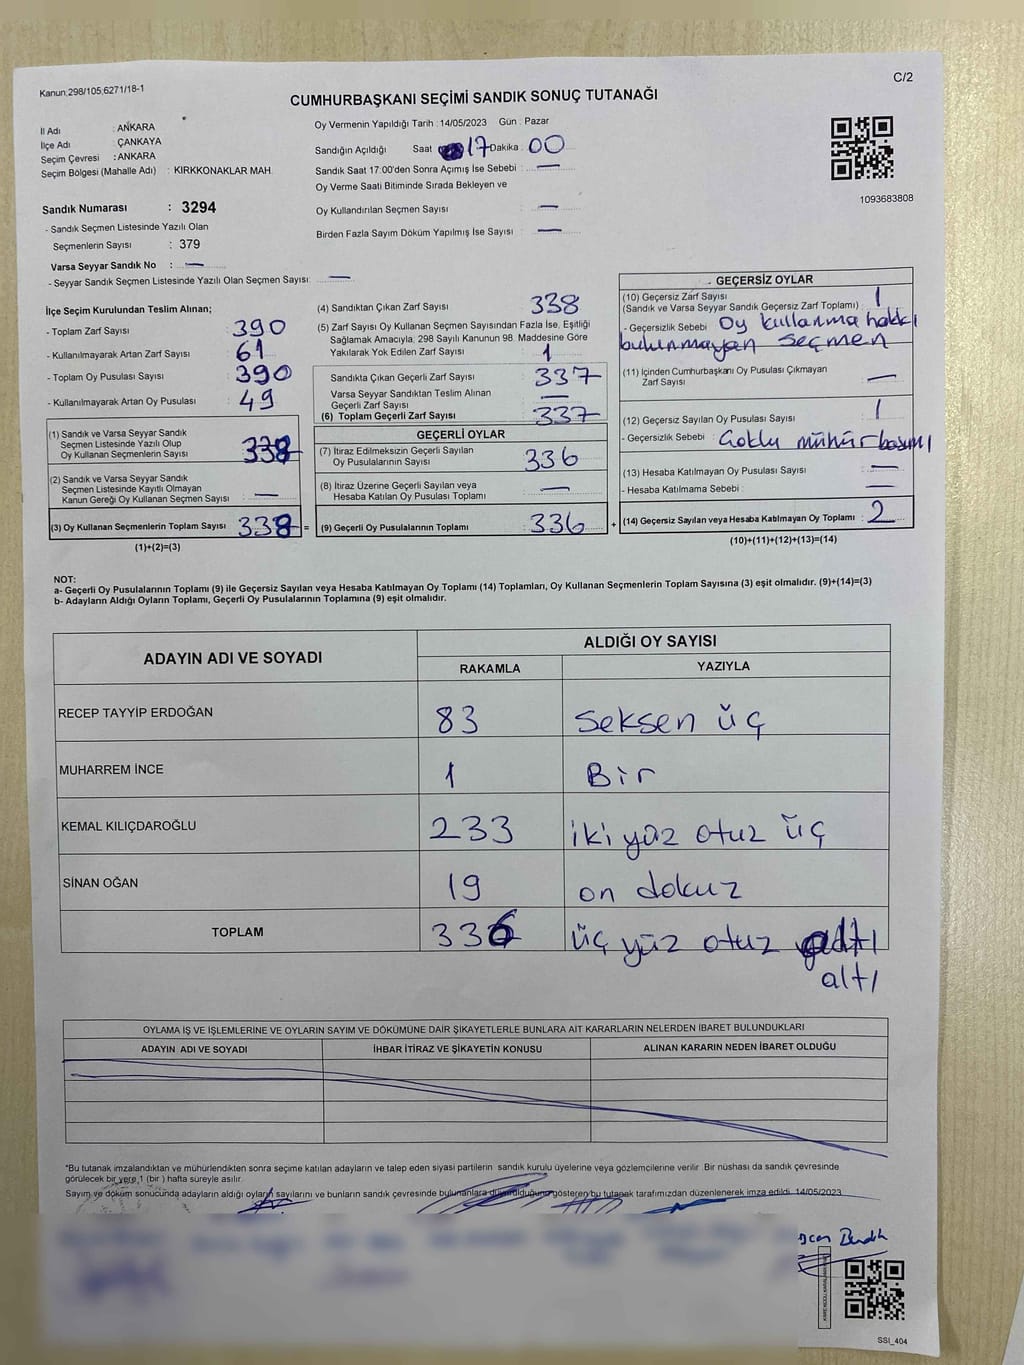 Kanun:298/105;6271/18-1
C/2
CUMHURBAŞKANI SEÇİMİ SANDIK SONUÇ TUTANAĞI
İl Adı : ANKARA
İlçe Adı : ÇANKAYA
Seçim Çevresi : ANKARA
Seçim Bölgesi (Mahalle Adı) : KIRKKONAKLAR MAH.
Oy Vermenin Yapıldığı Tarih : 14/05/2023 Gün : Pazar
Sandığın Açıldığı Saat 17 Dakika : 00
Sandık Saat 17:00'den Sonra Açımış İse Sebebi : —
Oy Verme Saati Bitiminde Sırada Bekleyen ve
Oy Kullandırılan Seçmen Sayısı —
Birden Fazla Sayım Döküm Yapılmış İse Sayısı : —
1093683808
Sandık Numarası : 3294
- Sandık Seçmen Listesinde Yazılı Olan
Seçmenlerin Sayısı : 379
Varsa Seyyar Sandık No : —
- Seyyar Sandık Seçmen Listesinde Yazılı Olan Seçmen Sayısı: —
İlçe Seçim Kurulundan Teslim Alınan;
- Toplam Zarf Sayısı : 390
- Kullanılmayarak Artan Zarf Sayısı : 61
- Toplam Oy Pusulası Sayısı : 390
- Kullanılmayarak Artan Oy Pusulası : 49
(1) Sandık ve Varsa Seyyar Sandık
Seçmen Listesinde Yazılı Olup
Oy Kullanan Seçmenlerin Sayısı 338
(2) Sandık ve Varsa Seyyar Sandık
Seçmen Listesinde Kayıtlı Olmayan
Kanun Gereği Oy Kullanan Seçmen Sayısı —
(3) Oy Kullanan Seçmenlerin Toplam Sayısı 338 =
(1)+(2)=(3)
(4) Sandıktan Çıkan Zarf Sayısı 338
(5) Zarf Sayısı Oy Kullanan Seçmen Sayısından Fazla İse, Eşitliği
Sağlamak Amacıyla; 298 Sayılı Kanunun 98. Maddesine Göre
Yakılarak Yok Edilen Zarf Sayısı : 1
Sandıkta Çıkan Geçerli Zarf Sayısı : 337
Varsa Seyyar Sandıktan Teslim Alınan
Geçerli Zarf Sayısı : —
(6) Toplam Geçerli Zarf Sayısı : 337
GEÇERLİ OYLAR
(7) İtiraz Edilmeksizin Geçerli Sayılan
Oy Pusulalarının Sayısı : 336
(8) İtiraz Üzerine Geçerli Sayılan veya
Hesaba Katılan Oy Pusulası Toplamı : —
(9) Geçerli Oy Pusulalarının Toplamı : 336 +
GEÇERSİZ OYLAR
(10) Geçersiz Zarf Sayısı
(Sandık ve Varsa Seyyar Sandık Geçersiz Zarf Toplamı) : 1
- Geçersizlik Sebebi : Oy kullanma hakkı
bulunmayan seçmen
(11) İçinden Cumhurbaşkanı Oy Pusulası Çıkmayan
Zarf Sayısı : —
(12) Geçersiz Sayılan Oy Pusulası Sayısı : 1
- Geçersizlik Sebebi : Çoklu mühür basımı
(13) Hesaba Katılmayan Oy Pusulası Sayısı : —
- Hesaba Katılmama Sebebi : —
(14) Geçersiz Sayılan veya Hesaba Katılmayan Oy Toplamı : 2
(10)+(11)+(12)+(13)=(14)
NOT:
a- Geçerli Oy Pusulalarının Toplamı (9) ile Geçersiz Sayılan veya Hesaba Katılmayan Oy Toplamı (14) Toplamları, Oy Kullanan Seçmenlerin Toplam Sayısına (3) eşit olmalıdır. (9)+(14)=(3)
b- Adayların Aldığı Oyların Toplamı, Geçerli Oy Pusulalarının Toplamına (9) eşit olmalıdır.
ADAYIN ADI VE SOYADI
ALDIĞI OY SAYISI
RAKAMLA YAZIYLA
RECEP TAYYİP ERDOĞAN 83 Seksen üç
MUHARREM İNCE 1 Bir
KEMAL KILIÇDAROĞLU 233 iki yüz otuz üç
SİNAN OĞAN 19 on dokuz
TOPLAM 336 üç yüz otuz
altı
OYLAMA İŞ VE İŞLEMLERİNE VE OYLARIN SAYIM VE DÖKÜMÜNE DAİR ŞİKAYETLERLE BUNLARA AİT KARARLARIN NELERDEN İBARET BULUNDUKLARI
ADAYIN ADI VE SOYADI İHBAR İTİRAZ VE ŞİKAYETİN KONUSU ALINAN KARARIN NEDEN İBARET OLDUĞU
*Bu tutanak imzalandıktan ve mühürlendikten sonra seçime katılan adayların ve talep eden siyasi partilerin sandık kurulu üyelerine veya gözlemcilerine verilir. Bir nüshası da sandık çevresinde
görülecek bir yere 1 (bir) hafta süreyle asılır.
Sayım ve döküm sonucunda adayların aldığı oyların sayılarını ve bunların sandık çevresinde bulunanlara duyurulduğunu gösteren bu tutanak tarafımızdan düzenlenerek imza edildi. 14/05/2023
SSI_404